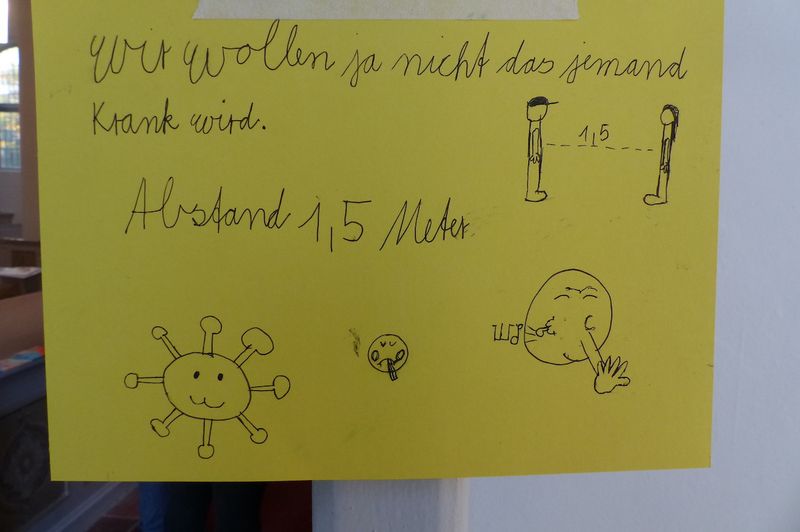 Wir wollen ja nicht das jemand
Krank wird.
1,5
Abstand 1,5 Meter